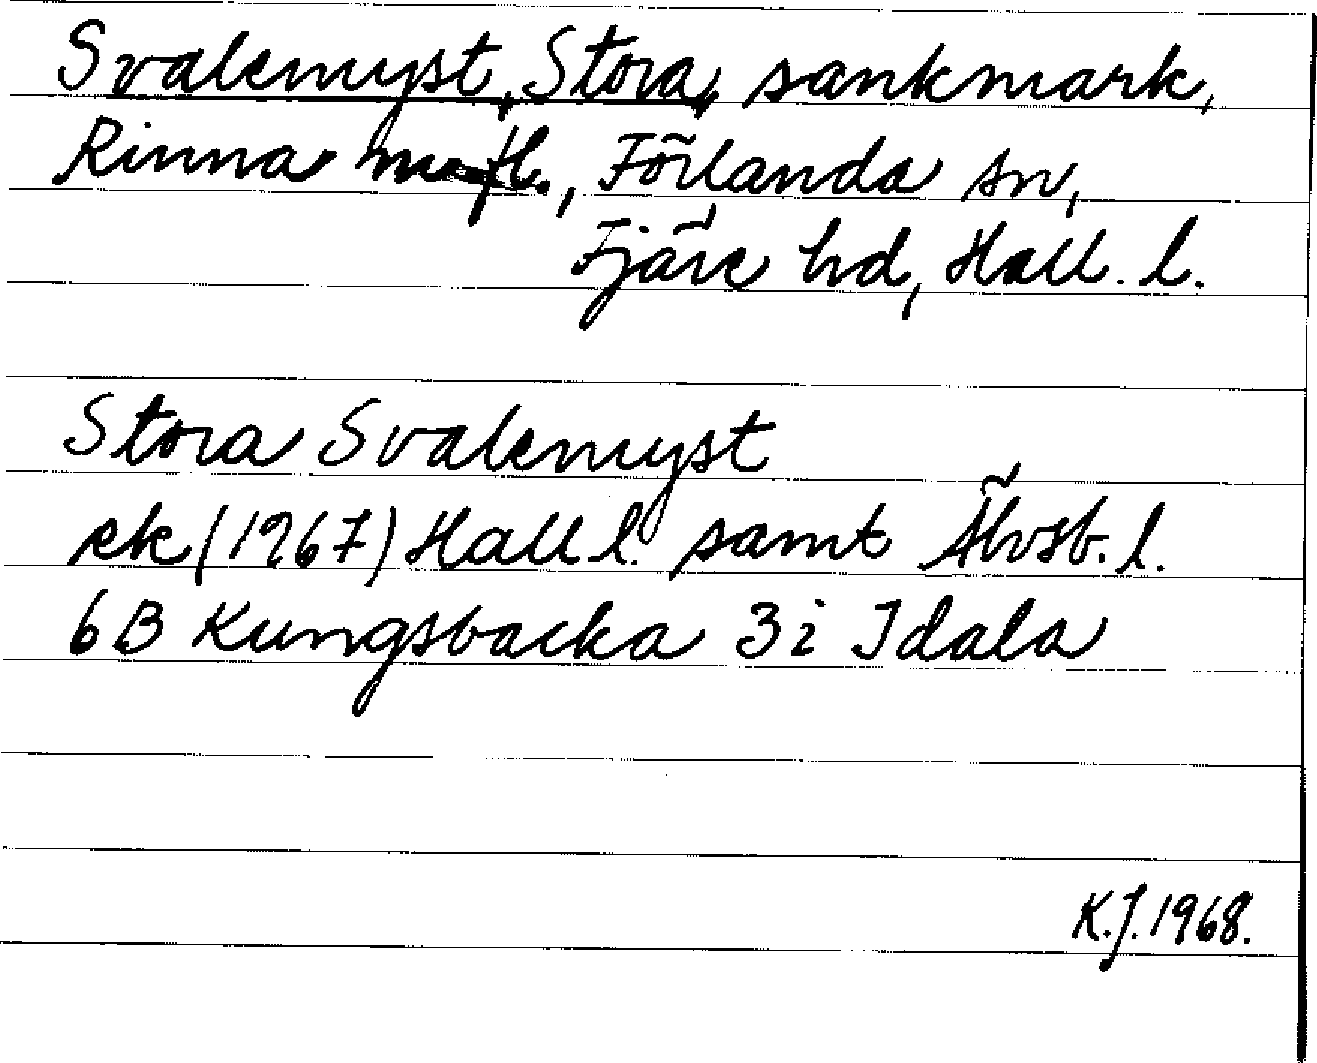 Svalemyst, Stora, sankmark,
Rinna m fl., Förlanda sn,
Fjäre hd, Hall. l.
Stora Svalemyst
ek (1967) Hall l. samt Älvsb. l.
6B Kungsbacka 3i Idala
K.J. 1968.